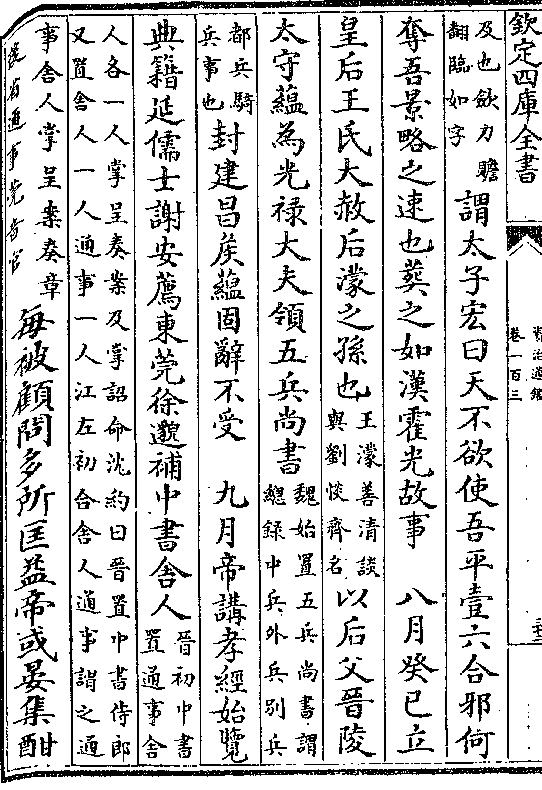 欽定四庫全書
資治通鑑
卷一百三
及也斂力贍
翻臨如字
謂太子宏曰天不欲使吾平壹六合邪何
奪吾景略之速也葬之如漢霍光故事　八月癸巳立
皇后王氏大赦后濛之孫也
王濛善清談
與劉惔齊名
以后父晉陵
太守蘊為光禄大夫領五兵尚書
魏始置五兵尚書謂
緫録中兵外兵别兵
都兵騎
兵事也
封建昌矦蘊固辭不受　九月帝講孝經始覽
典籍延儒士謝安薦東莞徐邈補中書舍人
晉初中書
置通事舍
人各一人掌呈奏案及掌詔命沈約曰晉置中書侍郎
又置舍人一人通事一人江左初合舍人通事謂之通
事舍人掌呈案奏章
後省通事莞音官
每被顧問多所匡益帝或宴集酣